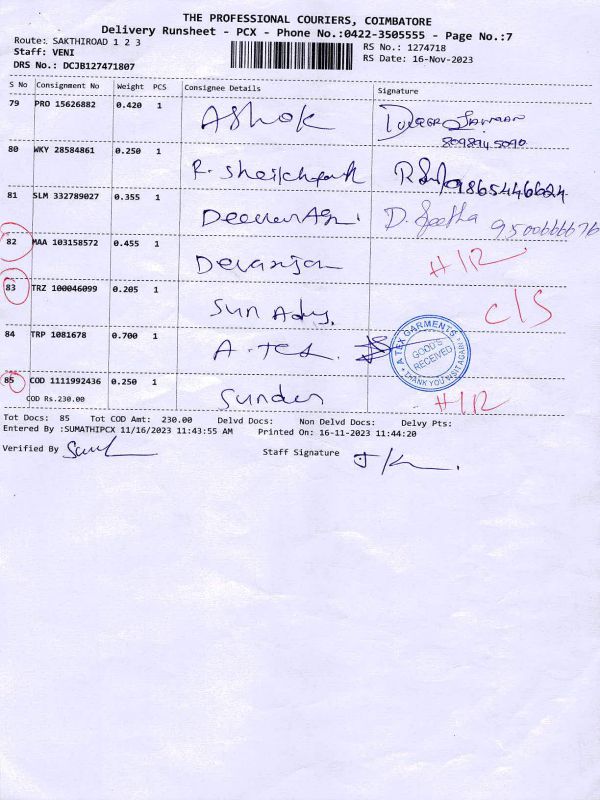 THE PROFESSIONAL COURIERS, COIMBATORE
Delivery Runsheet - PCX - Phone No.:0422-3505555 - Page No.:7
Route: SAKTHIROAD 1 2 3
RS No.: 1274718
Staff: VENI
RS Date: 16-Nov-2023
DRS No.: DCJB127471807
S No Consignment No Weight PCS Consignee Details Signature
79 PRO 15626882 0.420 1 Ashok
80 WKY 28584861 0.250 1 R. 9865446624
81 SLM 332789027 0.355 1 D. Seetha 9500666676
82 MAA 103158572 0.455 1 Devanjan
83 TRZ 100046099 0.205 1 Sun Ady. C/S
84 TRP 1081678 0.700 1 A. Tex. A TEX GARMENTS GOOD'S RECEIVED THANK YOU VISIT AGAIN
85 COD 1111992436 0.250 1 Sunder
COD Rs.230.00
Tot Docs: 85 Tot COD Amt: 230.00 Delvd Docs: Non Delvd Docs: Delvy Pts:
Entered By :SUMATHIPCX 11/16/2023 11:43:55 AM Printed On: 16-11-2023 11:44:20
Verified By Staff Signature